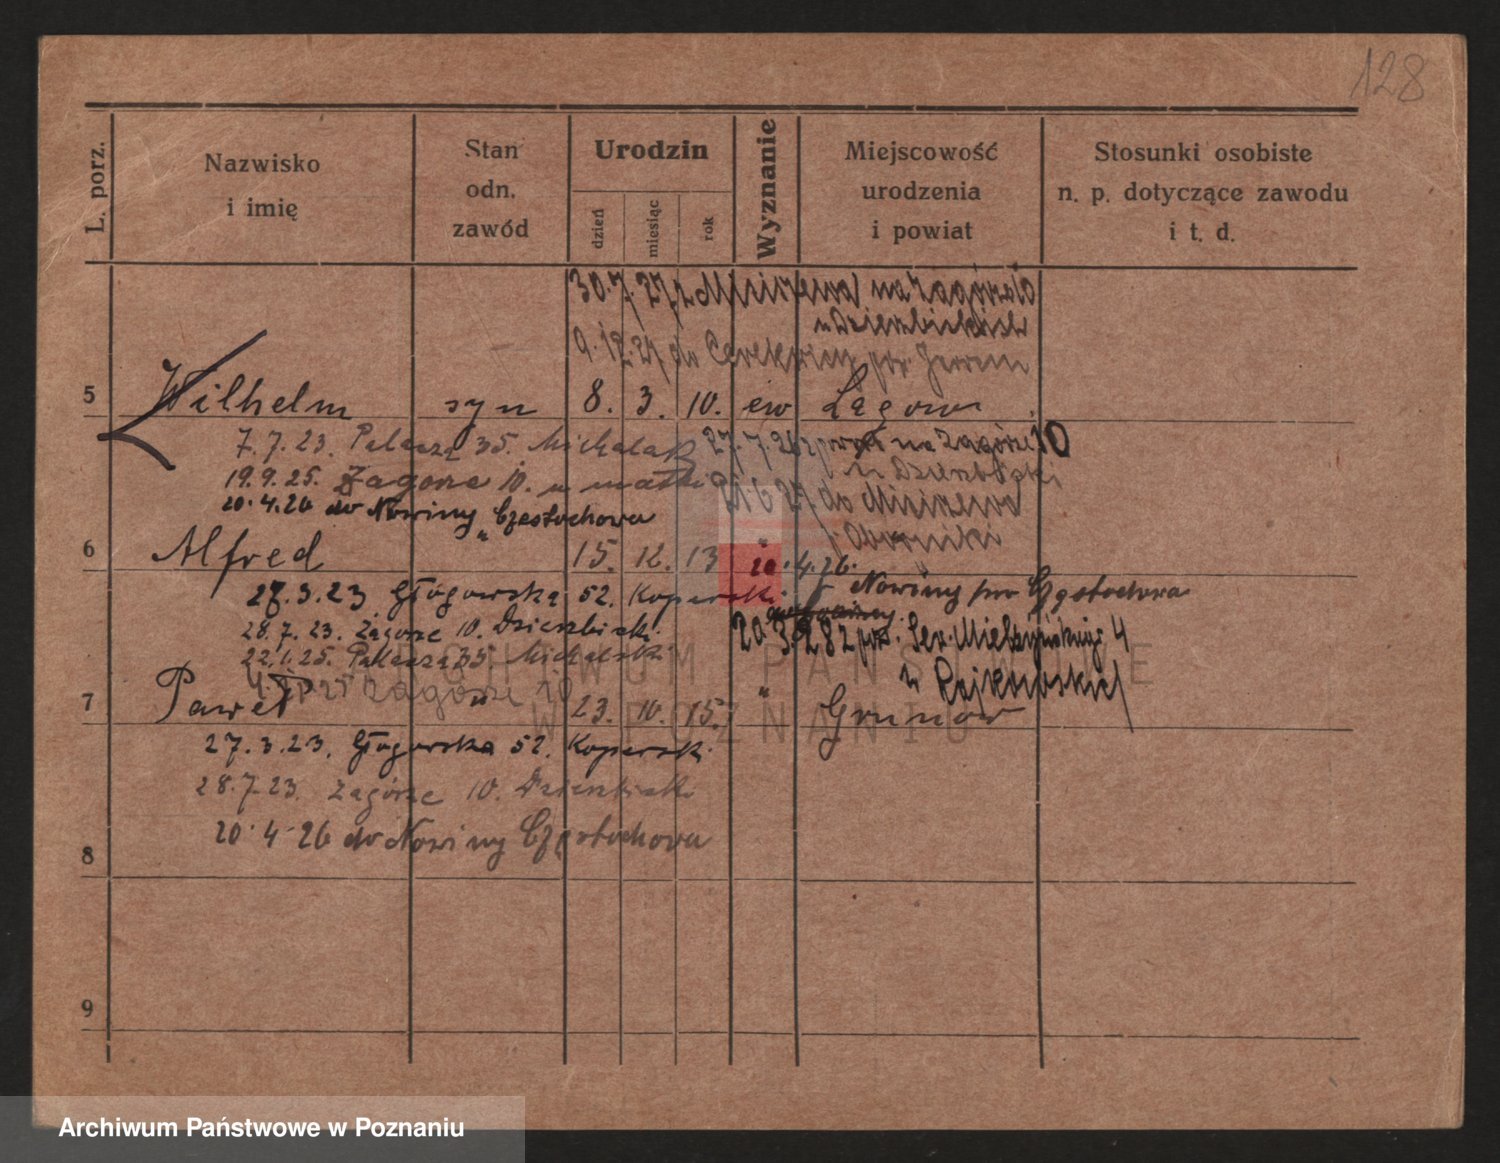 128
L. porz.
Nazwisko
i imię
Stan
odn.
zawód
Urodzin
dzień
miesiąc
rok
Wyznanie
Miejscowość
urodzenia
i powiat
Stosunki osobiste
n. p. dotyczące zawodu
i t. d.
30.7.27 z na Zagórze 10
u Dzierzbickich
9.12.27 do
5 Wilhelm syn 8. 3. 10. ew Łagow
7.7.23. Palacza 35. Michalak
27.7.26 z na Zagórze 10
u
19.9.25. Zagorze 10. u matki
21.6.27 do
20.4.26 do Nowiny Częstochowa
Oborniki
6 Alfred 15. 12. 13 "
20.4.26.
Nowiny pow Częstochowa
27.3.23 Głogowska 52. Koperski
28.7.23. Zagórze 10. Dzierzbicki
20.3.28 z Sew. Mielżyńskiego 4
22.1.25. Palacza 35. Michalski
u Rajkowskich
Zagórze 10
7 Paweł " 23. 10. 15. " Grunow
27.3.23. Głogowska 52. Koperski
28.7.23. Zagórze 10. Dzierzbicki
20.4.26 do Nowiny Częstochowa
8
9
ARCHIWUM PAŃSTWOWE
W POZNANIU
Archiwum Państwowe w Poznaniu